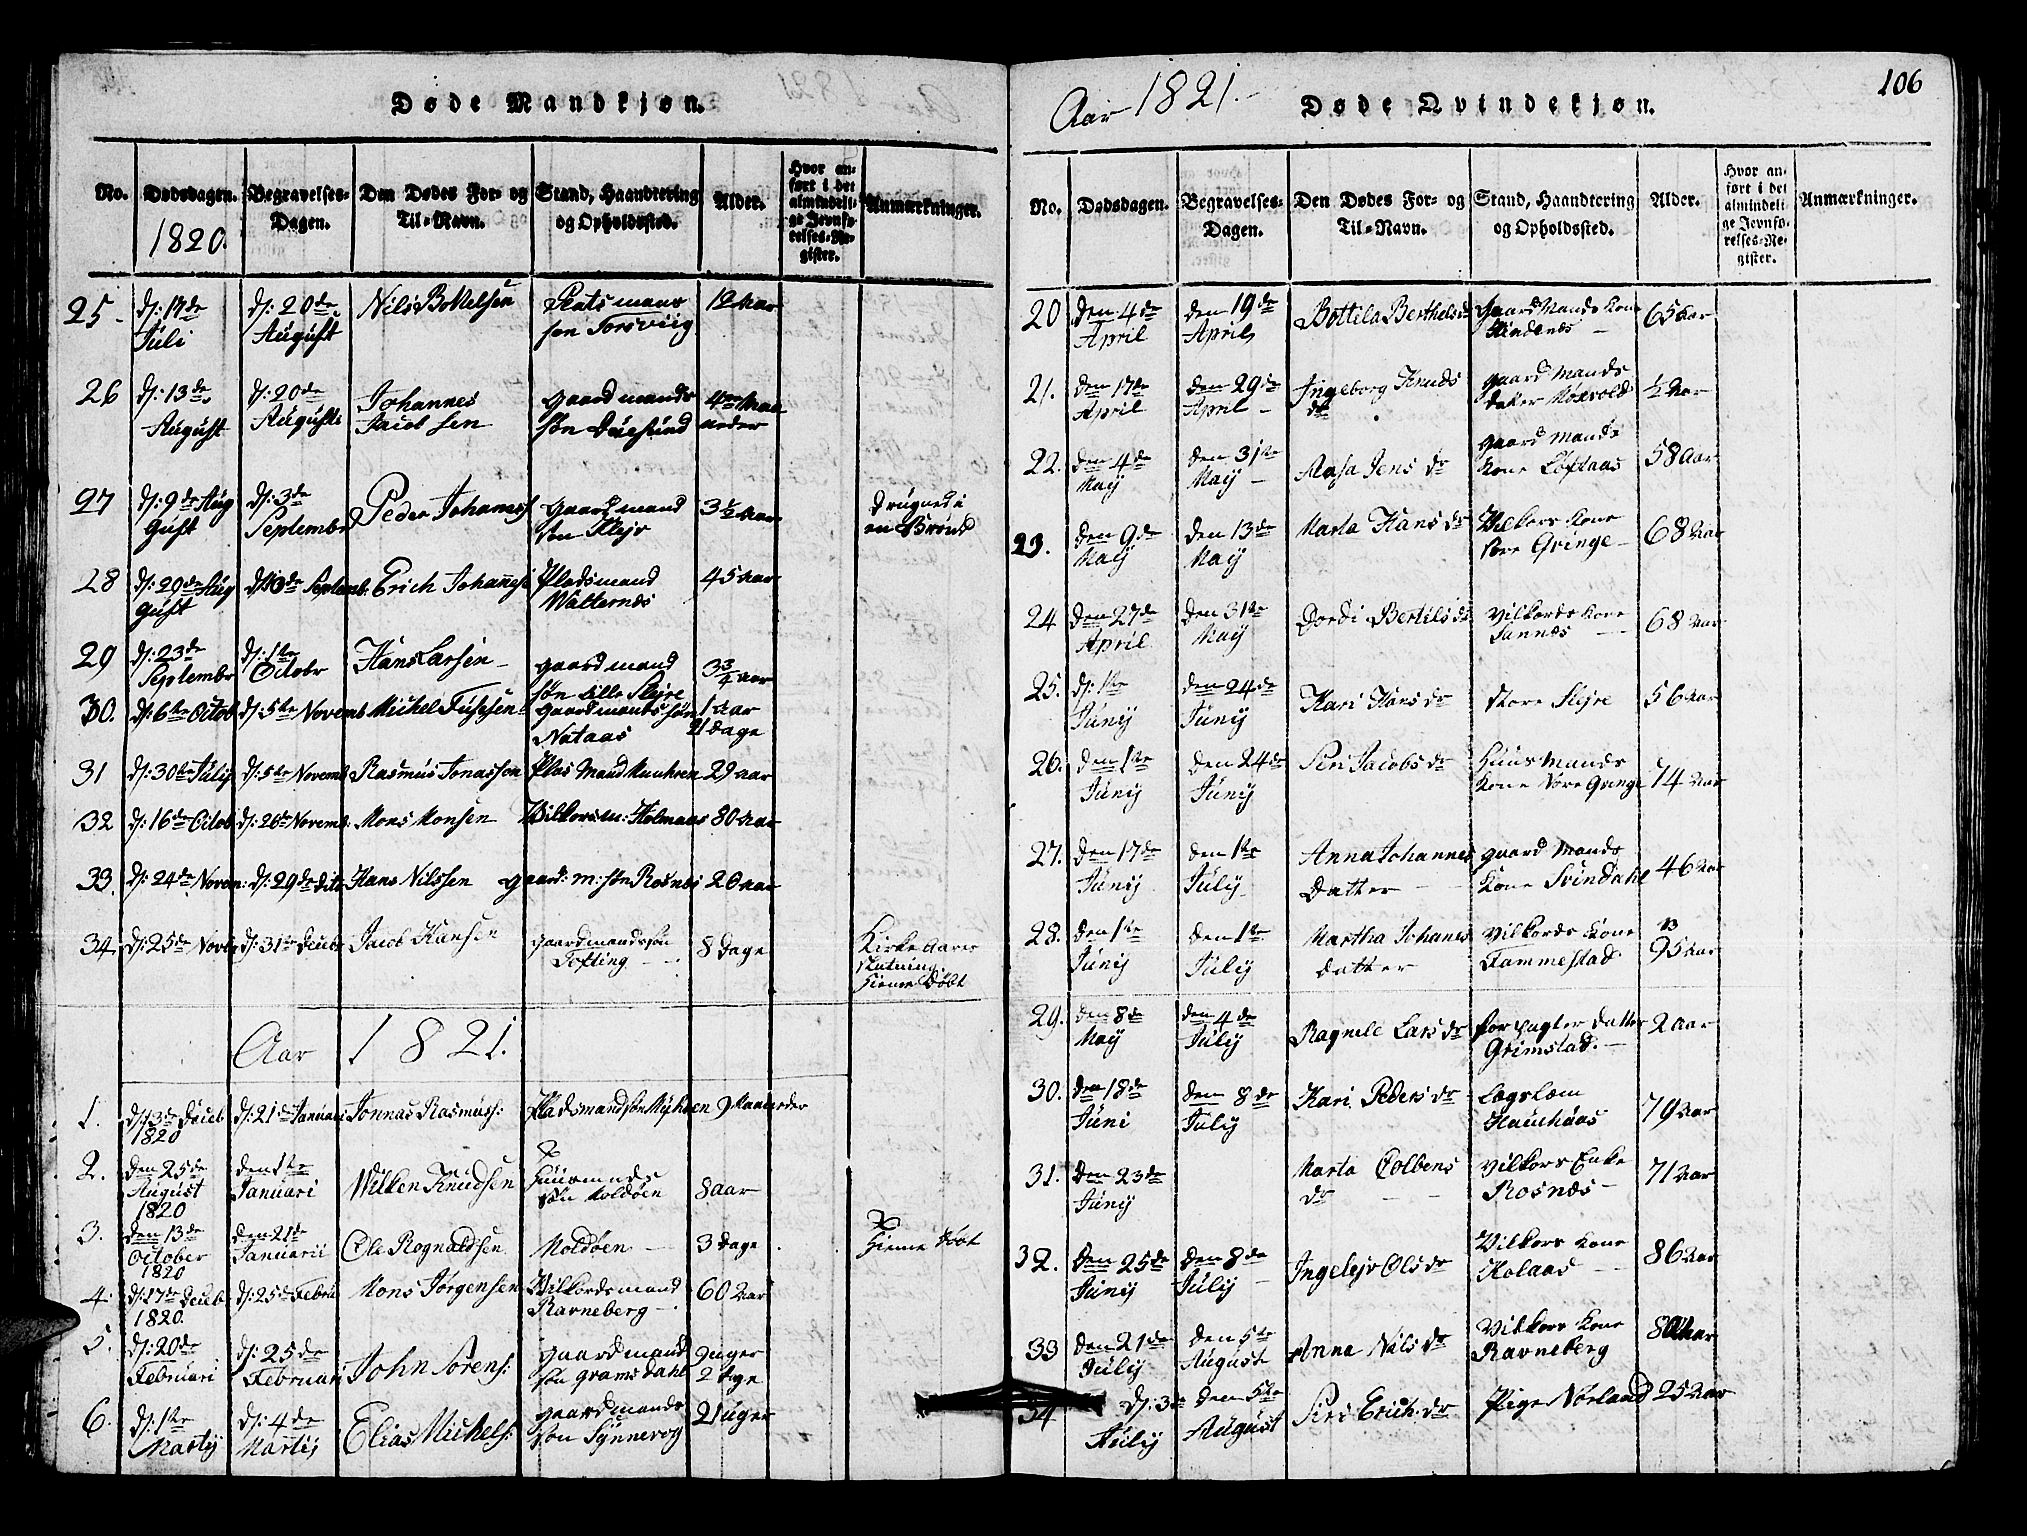 Døde Mandkjøn.
No.
Dødsdagen.
1820.
Begravelses-
Dagen.
Den Dødes For- og
Til-Navn.
Stand, Haandtering
og Opholdssted.
Alder.
Hvor an-
ført i det
almindeli-
ge Jevnfø-
relses-Re-
gister.
Anmærkninger.
25 d: 17de Juli d: 20de August Nils Bottelsen Platsmans søn Torsviig 12 Aar
26 d: 13de August d: 20de Augusti Johannes Jacobsen gaardmands søn Duesund 4re Maaneder
27 d: 9de August d: 3de Septembr Peder Johannes gaardmand søn Slejr 3½ Aar Drugned i en Brønd
28 d: 29de August Septemb: Erich Johannes Pladsmand Watternes 45 Aar
29 d: 23de Septembr d: 1te Octobr Hans Larsen gaardmand søn Lille Slejre 3¾ Aar
30. d: 6te Octob d: 5te Novemb Michel gaardmands søn Nataas 1 aar 21 Dage
31 d: 30te July d: 5te Novemb Rasmus Jonasson Plas Mand 29 aar
32 d: 16de Octob d: 26de Novemb: Mons Monsen Vilkorsm: Holmaas 80 aar
33. d: 24de Novem: d: 29de dito Hans Nilssen gaard: m: søn Rosnes 26 aar
34 d: 25de Novbr d: 31te Decebr Jacob Hansen gaardmandssøn Tofting 8 Dage Kirke
hieme Døbt
Aar 1821.
1. d: 13de Deceb 1820 d: 21de Januari Jonnas Rasmuss: Pladsmandsøn 9 Maaneder
2. Den 25de August 1820 den 1te Januari Wilken Knudsen Huusmands søn Moldøen 8 aar
3. Den 13de October 1820 den 21de Januarii Ole Rognaldsen Moldøen 3 Dage Hieme Døbt
4. d: 17de Deceb 1820. d: 25de Febru Mons Jørgensen Vilkordsmand Ravneberg 60 Aar
5. d: 20de Februari d: 25de Februari John Sorens: gaardmand søn Gramsdahl 9 uger 2 dage
6. d: 1te Martij d: 4de Martij Elias Michels: gaardmands søn Synnevog 21 uger
106
Aar 1821.
Døde Qvindekjøn.
No.
Dødsdagen.
Begravelses-
Dagen.
Den Dødes For- og
Til-Navn.
Stand, Haandtering
og Opholdssted.
Alder.
Hvor an-
ført i det
almindeli-
ge Jevnfø-
relses-Re-
gister.
Anmærkninger.
20 den 4de April den 19de April Bottila Berthelsdr Gaard Mands Kone Hindenes 65 aar
21. den 17de April den 29de April Ingeborg Knuds dr gaard Mands datter ½ Aar
22. den 4de May den 31te May Aasa Jens dr gaard Mands Kone Loftaas 58 Aar
23. den 9de Maij den 13de May Marta Hans dr Vilkors Kone 68 Aar
24 den 27de April den 31te May Dordi Bertils dr Vilkords Kone Sannes 68 Aar
25. d: 1te Junij den 24de Junij Kari Hans dr store Slejre 56 Aar
26. den 1te Junij den 24de Junij Siri Jacobs dr Huus Mands Kone Nore Gringe 74 Aar
27. den 17de Junij den 1te Julij Anna Johannes Datter gaard Mands Kone Svindahl 46 Aar
28. den 1te Junij den 1te Julij Martha Johanes datter Vilkords Kone Tammestad 95 Aar
29. den 8de May den 4de Julij Ragnele Lars dr Forpagter Datter Grimstad. 2 Aar
30. den 18de Juni den 8de Julij Kari Peders dr Legslem 79 Aar
31. den 23de Junij Marta Colbens dr Vilkors Enke Rosnæs 71 Aar
32. den 25de Junij den 8de Julij Ingelejv Ols dr Vilkors Kone Kolaas 86 Aar
33 den 21de Julij den 5te August Anna Nils dr Vilkors Kone Ravneberg Aar
34 d: 3de Julij den 5te August Siri Erich: dr Pige Nørland 25 Aar